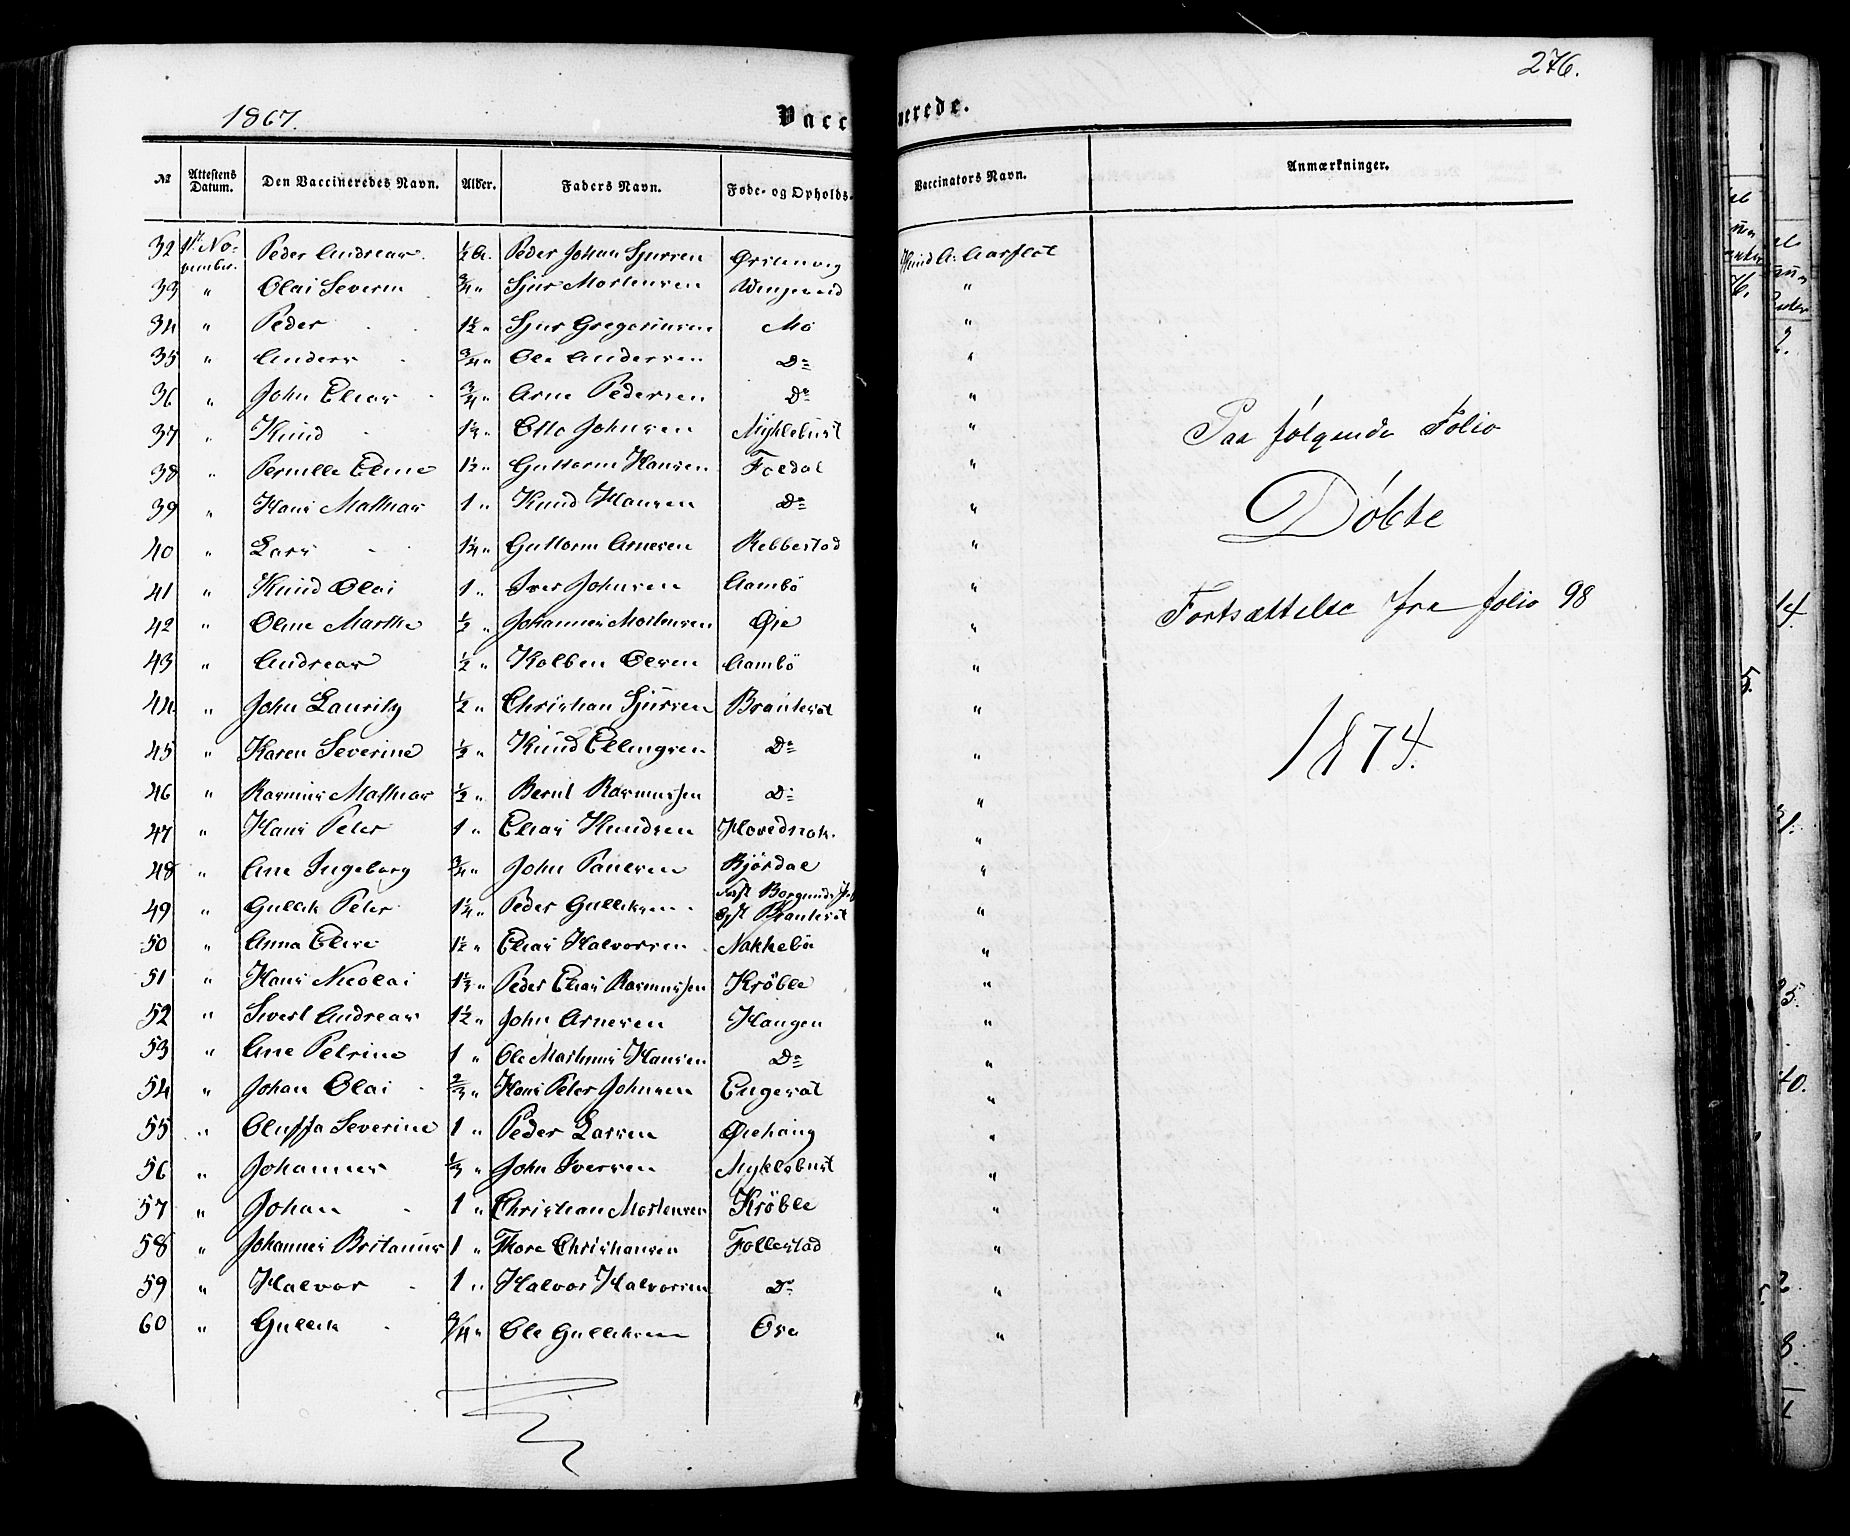 276.
1867.
Vaccinerede.
№ Attestens Datum. Den Vaccineredes Navn. Alder. Faders Navn. Føde- og Opholds- Vaccinators Navn. Anmærkninger.
32 1ste November. Peder Andreas ½ A. Peder Johan Sjursen Ørstenvig Knud A. Aarflot
33 " Olai Severin ¾ " Sjur Mortensen "
34 " Peder 1½ " Sjur Gregoriusen Mo "
35 " Anders ¾ " Ole Andersen Do "
36 " John Elias ¾ " Arne Pedersen Do "
37 " Knud Otto Johnsen Myklebust "
38 " Pernille Eline Guttorm Hansen Foldal "
39 " Hans Mathias 1 " Knud Hansen Do "
40 " Lars 1¼ " Guttorm Arnesen Rebbestad "
41 " Knud Olai 1 " Iver Johnsen Aambö "
42 " Oline Marthe ½ " Johannes Mortensen Øie "
43 " Andreas ½ " Kolben Olsen Aambö "
44 " John Lauritz ½ " Christian Sjursen Brautesæt "
45 " Karen Severine ½ " Knud Ellingsen Do "
46 " Rasmus Mathias ½ " Bernt Rasmussen Do "
47 " Hans Peter 1 " Elias Knudsen Hovednak. "
48 " Ane Ingeborg ¾ " John Paulsen Bjørdal "
49 " Gullik Peter 1¼ " Peder Gulliksen Født Borgund Opst Brautesæt "
50 " Anna Elise 1½ " Elias Halvorsen Nakkebö "
51 " Hans Nicolai Peder Elias Rasmussen Krøble "
52 " Sivert Andreas 1½ " John Arnesen Haugen "
53 " Ane Petrine 1 " Ole Martinus Hansen Do "
54 " Johan Olai ⅔ " Hans Peter Johnsen Engeset "
55 " Oluffa Severine 1 " Peder Larsen Øiehaug "
56 " Johannes ⅓ " John Iversen Myklebust "
57 " Johan 1 " Christian Mortensen Krøble "
58 " Johannes Britanus 1 " Thore Christiansen Follestad "
59 " Halvor 1 " Halvor Halvorsen Do "
60 " Gullik ¾ " Ole Gulliksen Ose "
Paa følgende Folio
Døbte
Fortsættelse fra folio 98
1874.